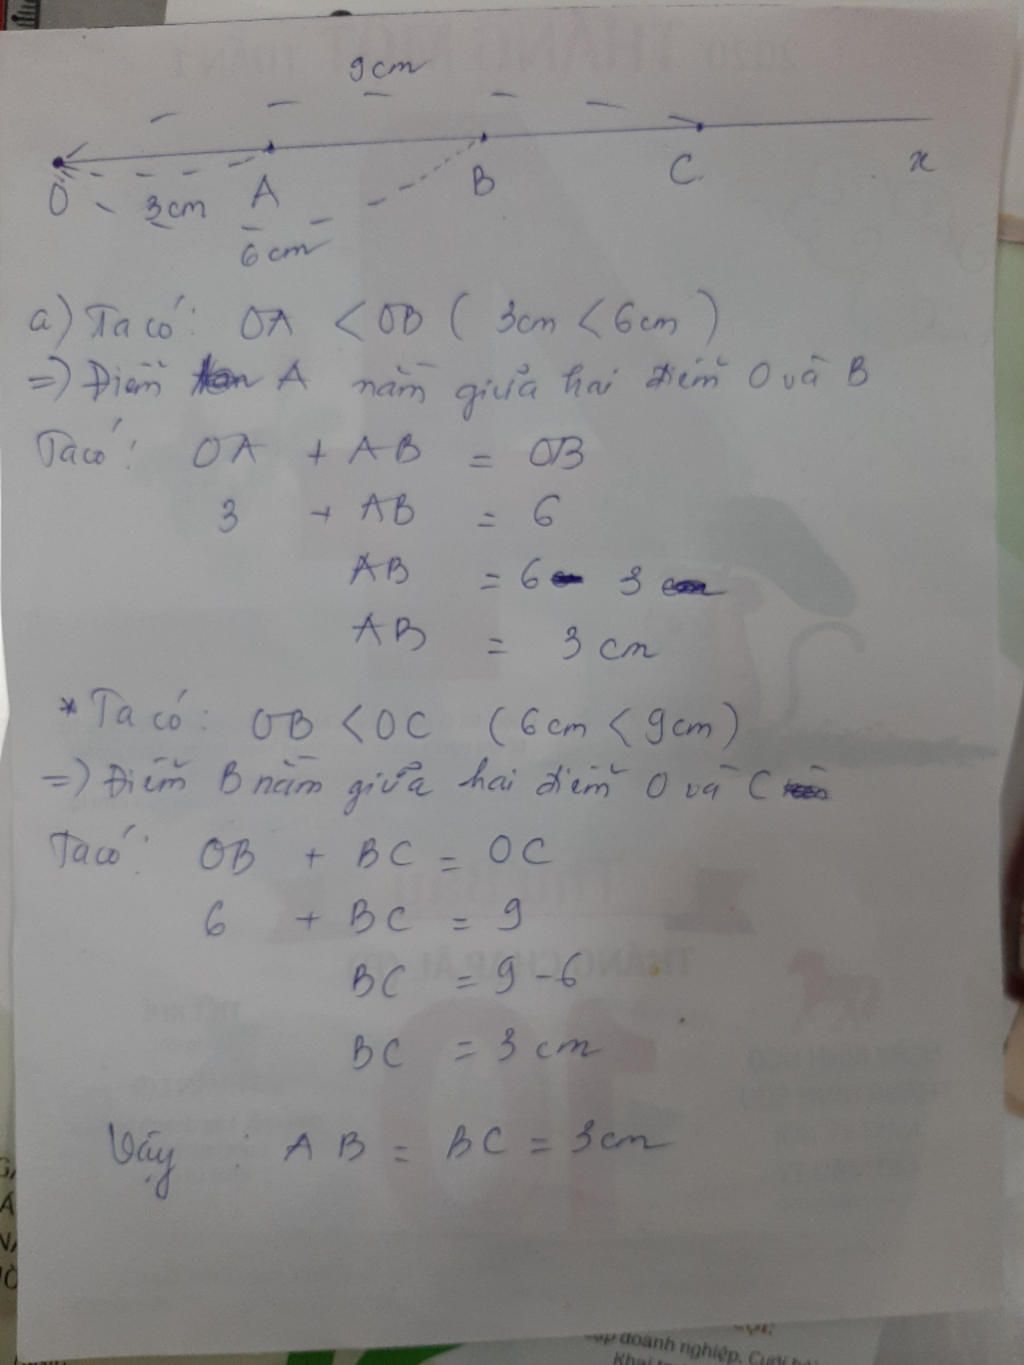 9cm
O 3cm A B C x
6cm
a) Ta có: OA < OB ( 3cm < 6cm )
=> Điểm A nằm giữa hai điểm O và B
Ta có: OA + AB = OB
3 + AB = 6
AB = 6 3
AB = 3 cm
* Ta có: OB < OC (6cm < 9cm)
=> Điểm B nằm giữa hai điểm O và C
Ta có: OB + BC = OC
6 + BC = 9
BC = 9 - 6
BC = 3 cm
Vậy : AB = BC = 3cm
doanh nghiệp. Cuối